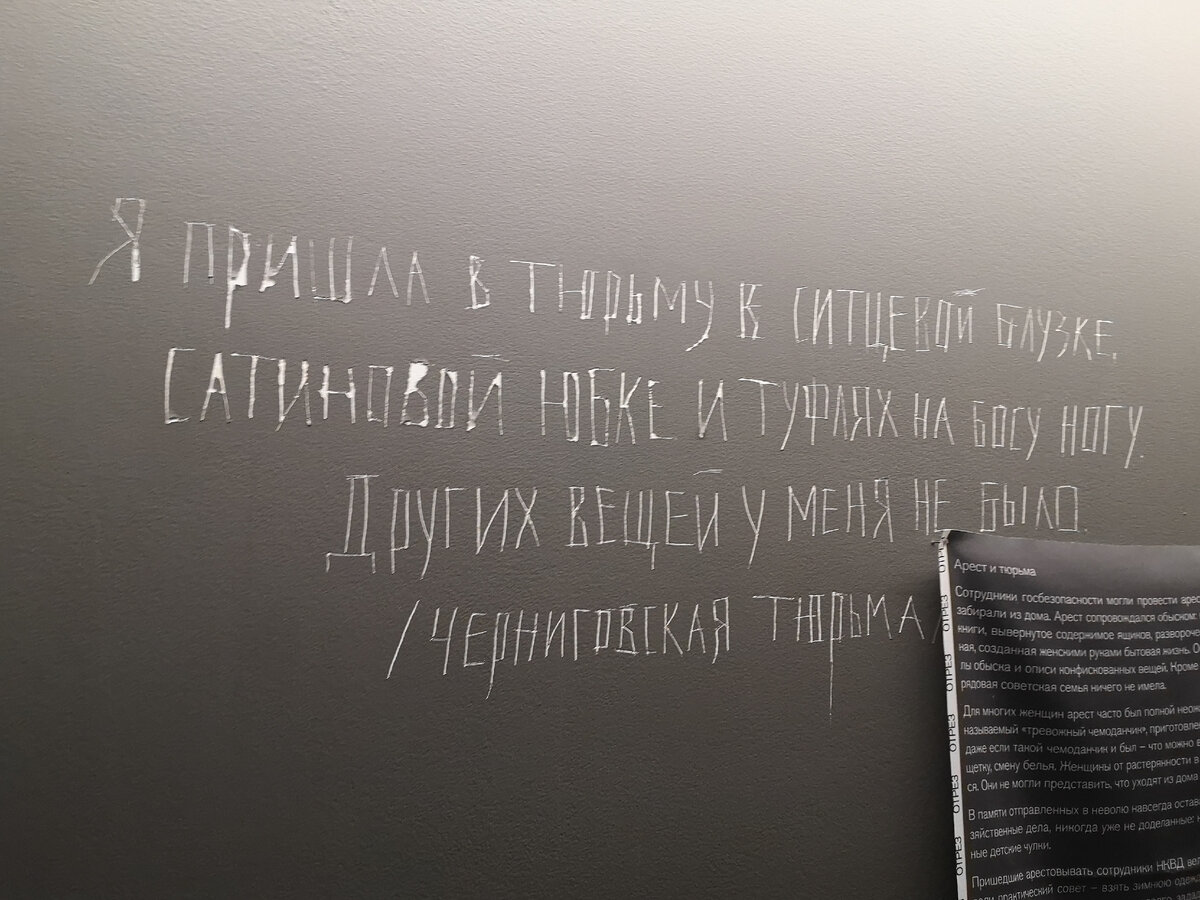 Я ПРИШЛА В ТЮРЬМУ В СИТЦЕВОЙ БЛУЗКЕ,
САТИНОВОЙ ЮБКЕ И ТУФЛЯХ НА БОСУ НОГУ.
ДРУГИХ ВЕЩЕЙ У МЕНЯ НЕ БЫЛО.
/ЧЕРНИГОВСКАЯ ТЮРЬМА/
Арест и тюрьма
Сотрудники госбезопасности могли провести
забирали из дома. Арест сопровождался обыском:
книги, вывернутое содержимое ящиков,
ная, созданная женскими руками бытовая жизнь.
лы обыска и описи конфискованных вещей. Кроме
рядовая советская семья ничего не имела.
Для многих женщин арест часто был полной
называемый «тревожный чемоданчик»,
даже если такой чемоданчик и был – что можно
щетку, смену белья. Женщины от растерянности в
ся. Они не могли представить, что уходят из дома
В памяти отправленных в неволю навсегда
зяйственные дела, никогда уже не доделанные:
ные детские чулки.
Пришедшие арестовывать сотрудники НКВД
практический совет – взять зимнюю
ОТРЕЗ
ОТРЕЗ
ОТРЕЗ
ОТРЕЗ
ОТРЕЗ
ОТРЕЗ